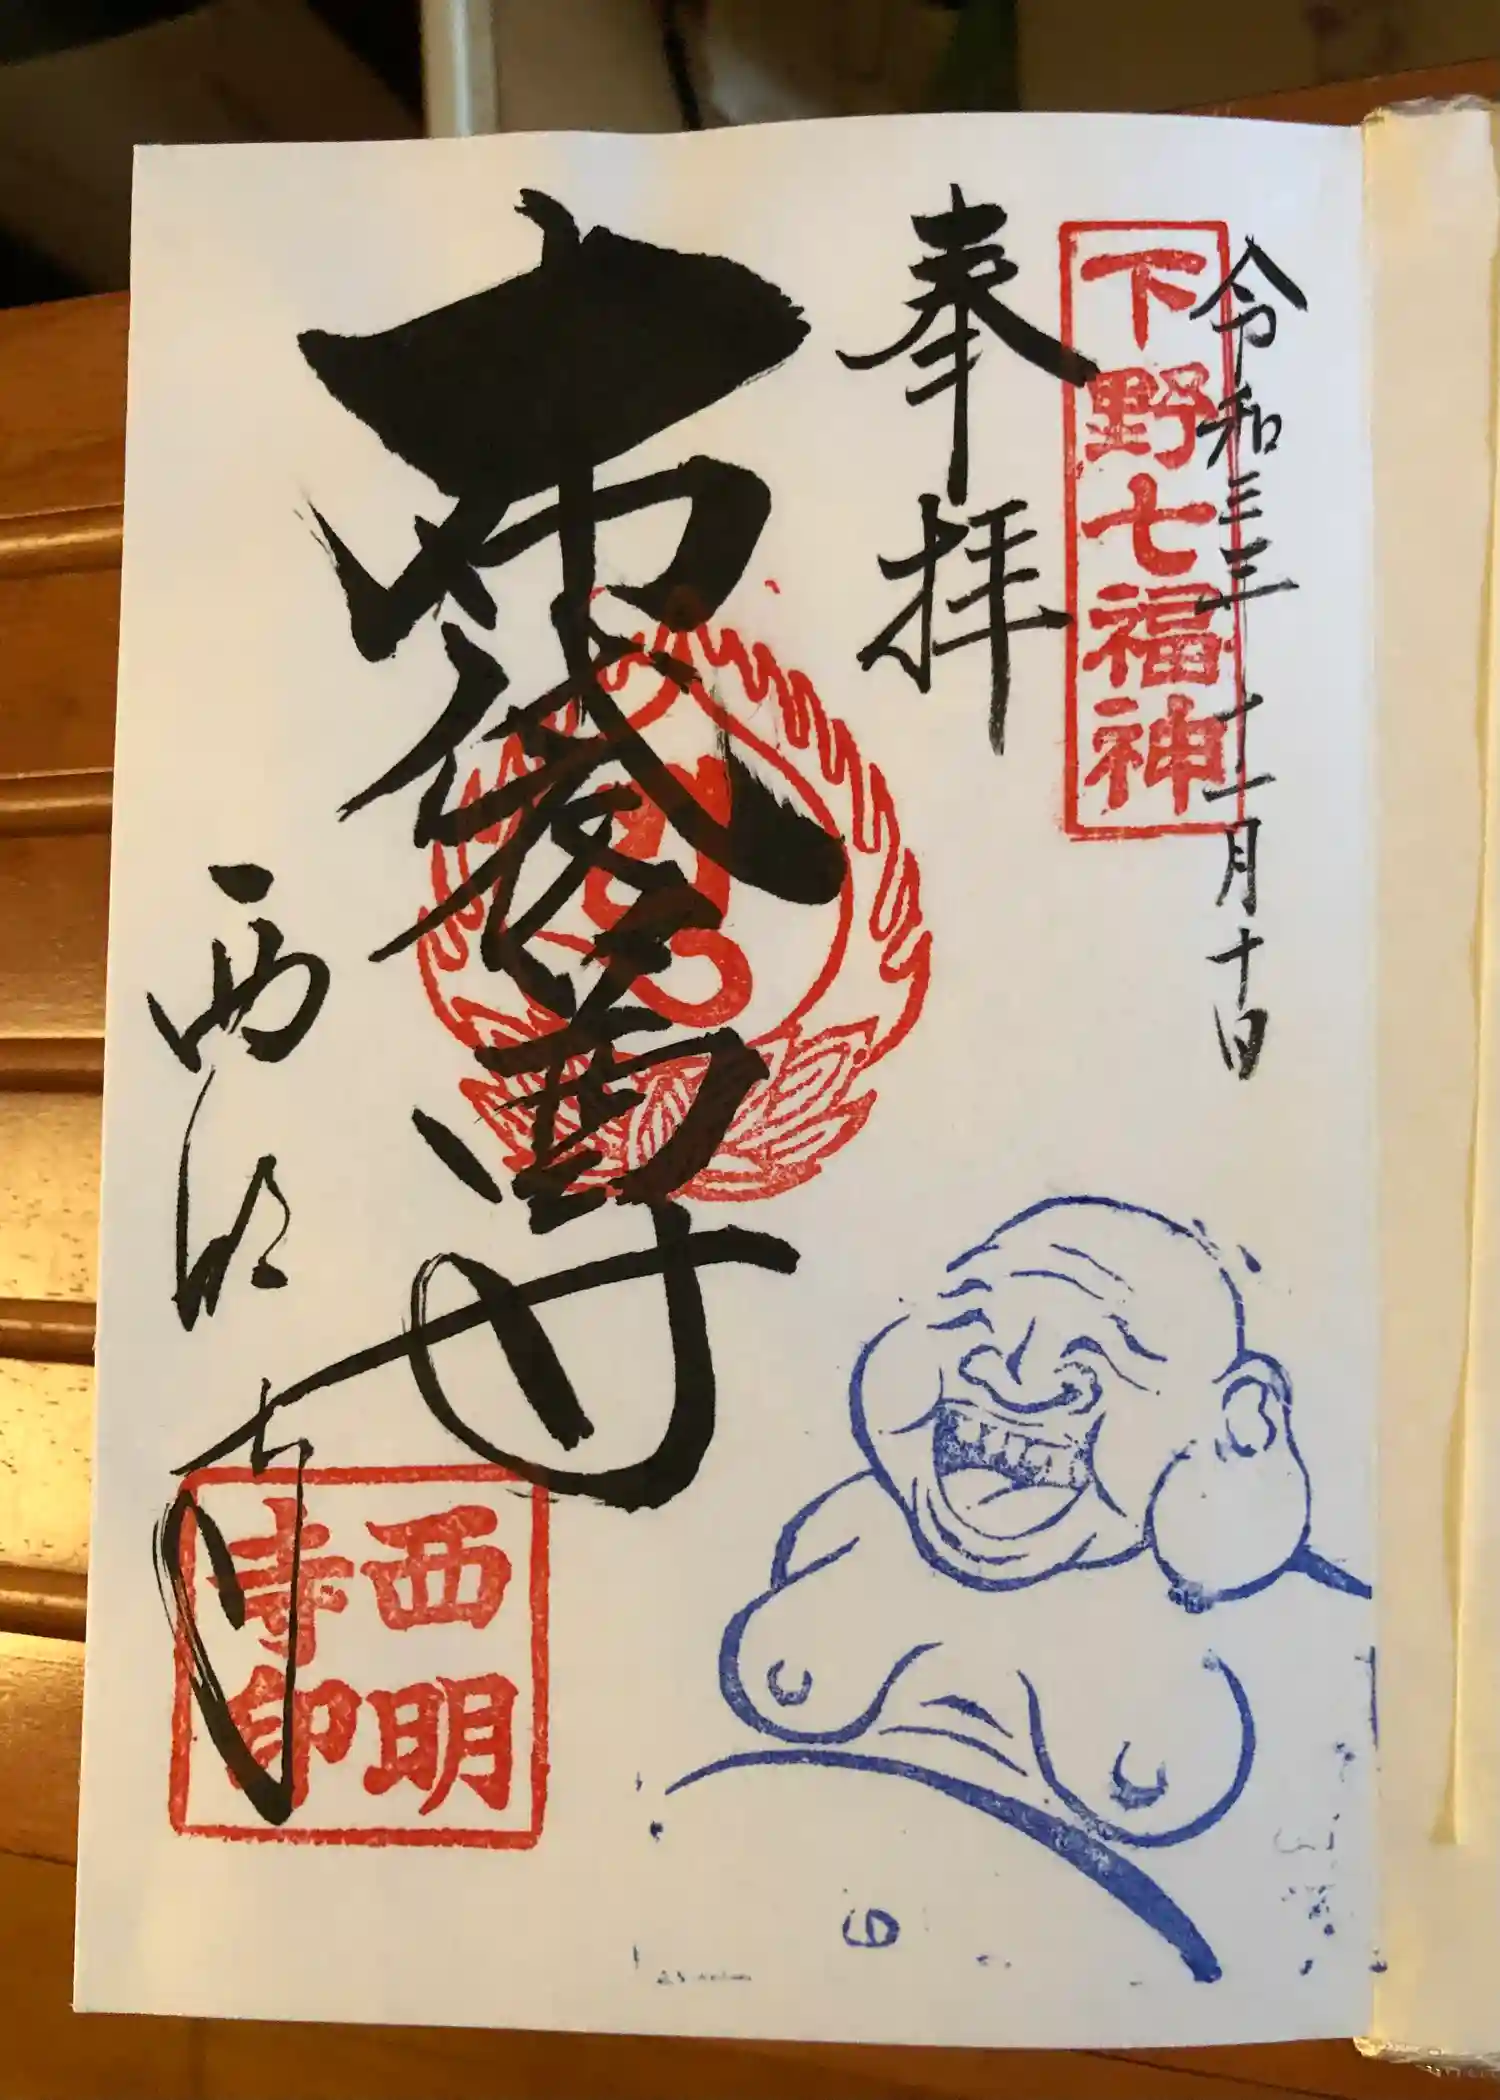 令和三年十二月十日
下野七福神
奉拝
布袋尊
西明寺
西明
寺印